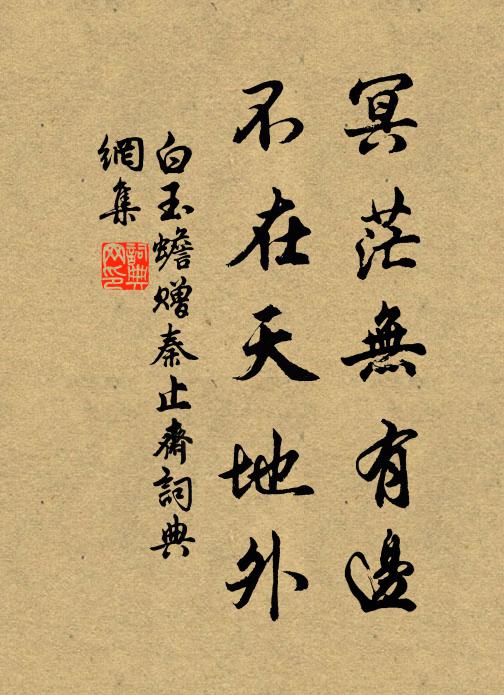 冥茫無有邊
不在天地外
白玉蟾贈秦止齋詞典
網集
詞典
网印